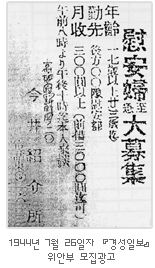 慰安婦至急大募集
年齢 一七歳以上廿三歳迄
勤先 後方〇〇隊慰安部
月收 三〇〇圓以上(前借三〇〇〇圓迄可)
午前八時より午後十時迄本人來談
今井紹介所
1944년 7월 26일자 『경성일보』
위안부 모집광고